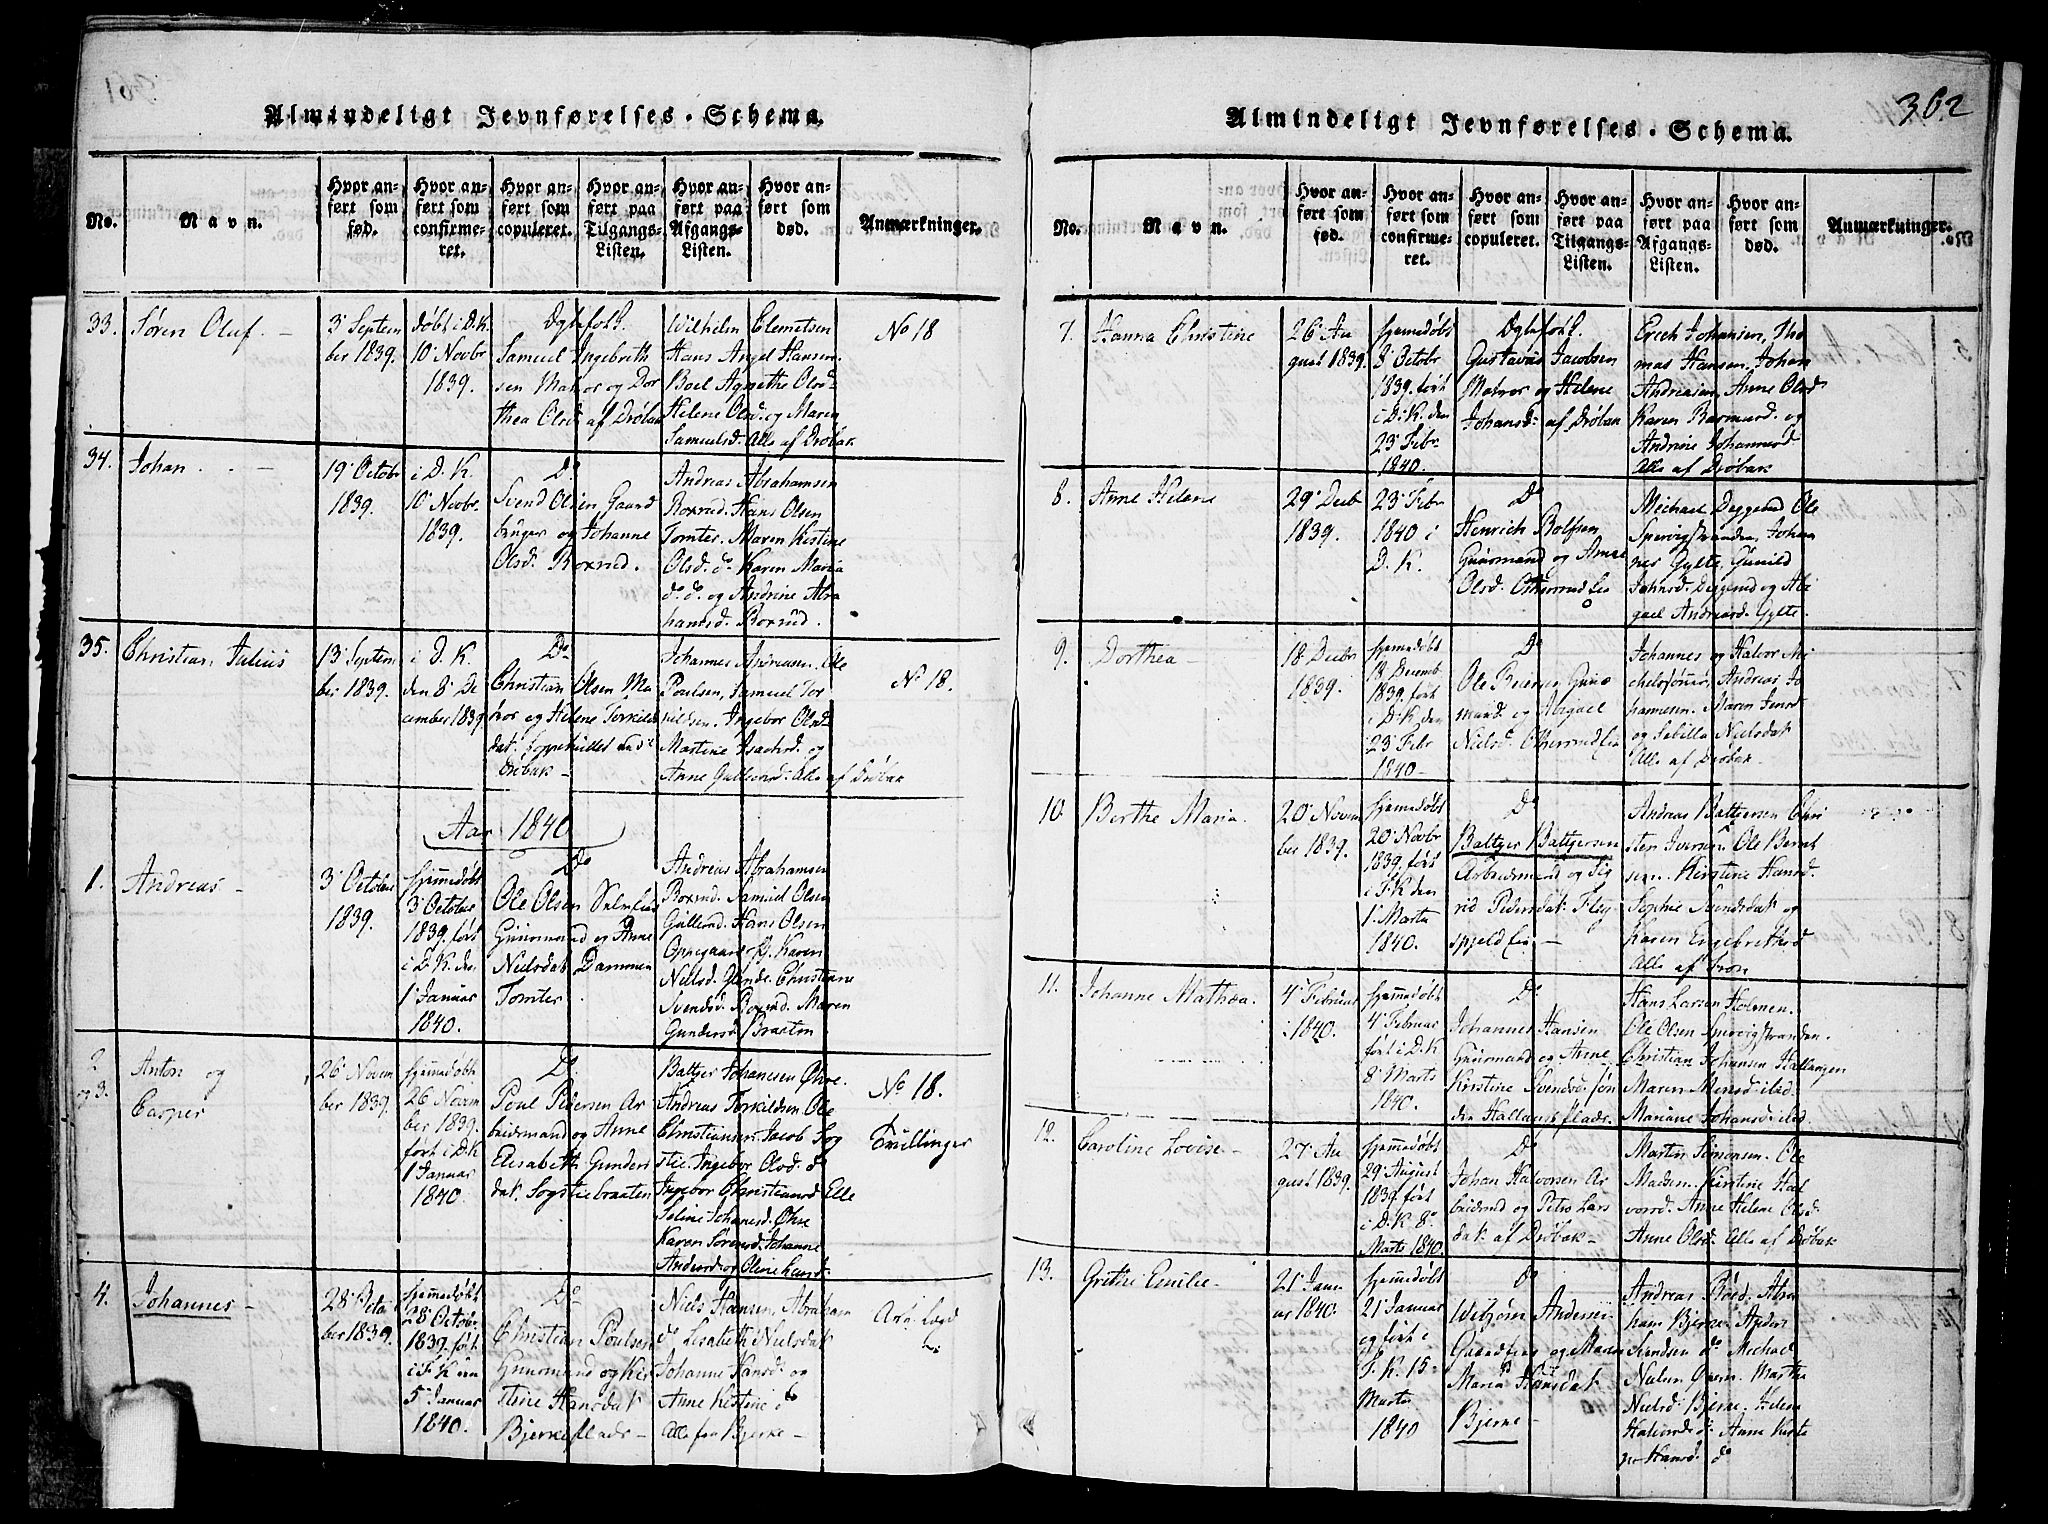 Almindeligt Jevnførelses-Schema.
No.
Navn.
Hvor an-
ført som
fød.
Hvor an-
ført som
confirme-
ret.
Hvor an-
ført som
copuleret.
Hvor an-
ført paa
Tilgangs-
Listen.
Hvor an-
ført paa
Afgangs-
Listen.
Hvor an-
ført som
død.
Anmærkninger.
33.
Søren Oluf.
3' Septem
ber 1839.
døbt i D.K.
10' Novbr
1839.
Ægtefolk.
Samuel Ingebreth
sen Matros og Dor
thea Olsd: af Drøbak
Wilhelm Clemetsen
Hans Angel Hansen
Boel Agnethe Olsd:
Helene Olsd. og Maren
Samuelsd. Alle af Drøbak
No 18
34.
Johan
19' Octobr
1839.
i D. K.
10' Novbr.
1839.
Do
Svend Olsen Gaard
bruger og Johanne
Olsd: Roxrud.
Andreas Abrahamsen
Roxrud. Hans Olsen
Tomter. Maren Kistine
Olsd. do Karen Maria
do. do. og Andrine Abra
hamsd. Roxrud.
35.
Christian Julius
13' Septem
ber 1839.
i D. K.
den 8' De
cember 1839
Do
Christian Olsen Ma
tros og Helene Torkilds
dat.
Drøbak
Johannes Andreasen. Ole
Poulsen, Samuel Tor
kildsen. Ingebor Olsd.
Martine Isachsd. og
Anne Gulbrand: Alle af Drøbak
No 18.
Aar 1840
1.
Andreas
3' October
1839.
hjemmedøbt
3' October
1839. ført
i D.K. den
1' Januar
1840.
Do
Ole Olsen
Huusmand og Anne
Nielsdat. Dammen
Tomter
Andreas Abrahamsen
Roxrud. Samuel Olsen
Gullerud. Hans Olsen
Oppegaard. Karen
Nielsd. Christiane
Svendsd. Roxrud. Maren
Gundersd. Braaten
2
og 3.
Anton og
Casper
26' Novem
ber 1839.
hjemmedøbt
26 Novem
ber 1839.
ført i D.K
1' Januar
1840.
Do
Poul Pedersen Ar
beidsmand og Anne
Elisabeth Gunders
dat. Sogstiebraaten
Baltzer Johanesen Øhre.
Andreas Torkildsen. Ole
Christiansen. Jacob Sog
stie. Ingebor Olsd. do
Ingebor Christiansd Elle
Seline Johansd. Øhre
Karen Sørensd. Johanne
Andersd og Olene
No 18.
Tvillinger
4.
Johannes
28' Octo
ber 1839.
hjemmedøbt
28' Octobr.
1839. ført
i F. K
5' Januar
1840.
Do
Christian Poulsen
Huusmand og Kir
stine Hansdat.
Bjerkeflade
Niels Hansen, Abraham
do. Lisabeth Nielsdat
Johanne Hansd. og
Anne Kistine do
Alle fra Bjerke
362
Almindeligt Jevnførelses-Schema.
No.
Navn.
Hvor an-
ført som
fød.
Hvor an-
ført som
confirme-
ret.
Hvor an-
ført som
copuleret.
Hvor an-
ført paa
Tilgangs-
Listen.
Hvor an-
ført paa
Afgangs-
Listen.
Hvor an-
ført som
død.
Anmærkninger.
7.
Hanna Christine
26' Au
gust 1839.
hjemmedøbt
8' Octobr
1839. ført
i D.K. den
23' Febr
1840.
Ægtefolk.
Gustavus Jacobsen
Matros og Helene
Johansd: af Drøbak
Erich Johansen, Tho
mas Hansen. Johan
Andreasen, Anne Olsd
Karen Rasmusd. og
Andrine Johannesd
Alle af Drøbak
8.
Anne Helene
29' Decbr
1839.
23' Febr
1840 i
D. K.
Do
Henrich Rolfsen
Huusmand og Anne
Olsd.
Michael Deggerud Ole
Spervigstranden, Johan
nes Gylte, Gunild
Johnsd. Deggerud og Abi
gael Andersd. Gylte.
9.
Dorthea
18' Decbr
1839.
hjemmedøbt
18 Decemb
1839, ført
i D.K. den
23' Febr
1840
Do
Ole Huus
mand og Abigael
Nielsd.
Johannes og Halvor Mi
chelsønner, Andreas Jo
hannesen. Maren Jensd
og Sebilla Nielsdat
Alle af Drøbak
10.
Berthe Maria.
20' Novem
ber 1839.
hjemmedøbt
20' Novbr
1839. ført
i F.K den
1' Marts
1840.
Do
Baltzer Baltzersen
Arbeidsmand og Sig
rid Pedersdat. Fleg
spjeld
Andreas Baltzersen Chri
sten Iversen Ole Bernt
sen. Kirstine Hansd.
Sophie Svendsdat og
Karen Engebrethsd
Alle af
11.
Johanne Mathea.
4' Februar
1840.
hjemmedøbt
4' Februar
ført i D.K
8' Marts
1840.
Do
Johannes Hansen
Huusmand og Anne
Kirstine Svendsd. Søn
dre Hallangsflade.
Hans Larsen Holmen.
Ole Olsen Spervigstranden.
Christian Johansen Hallangen
Maren Monsd ibd
Mariane Johansd ibd
12.
Caroline Lovise
27' Au
gust 1839.
hjemmedøbt
29' August
1839. ført
i D.K 8'
Marts 1840.
Do
Johan Halvorsen Ar
beidsmd og Petro Lars
dat. af Drøbak
Martin Simonsen. Ole
Madsen. Kirstine Hal
vorsd. Anne Helene Olsd.
Anne Olsd. Alle af Drøbak
13.
Grethe Emilie
21' Janu
ar 1840.
hjemmedøbt
21' Januar
og ført i
F. K. 15
Marts
1840
Do
Webjørn Andersen
Gaardbrug og Maren
Maria Hansdat.
Bjerke
Andreas Røed. Abra
ham Bjerke. Anders
Svendsen do Michael
Nielsen Marthe
Nielsd. Bjerke. Helene
Halvorsd do Anne Kirsti
ne Hansd. do